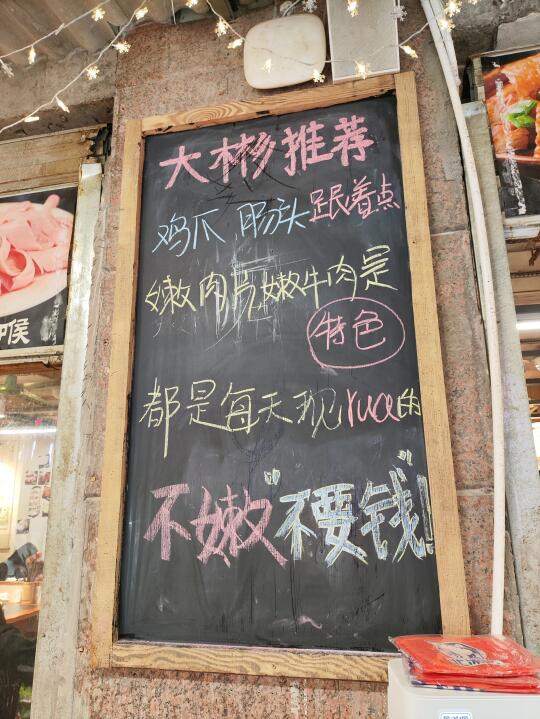 大彬推荐
鸡爪 肠头跟着点
嫩肉片嫩牛肉是
特色
都是每天现rua的
不嫩"不要钱"!
喉